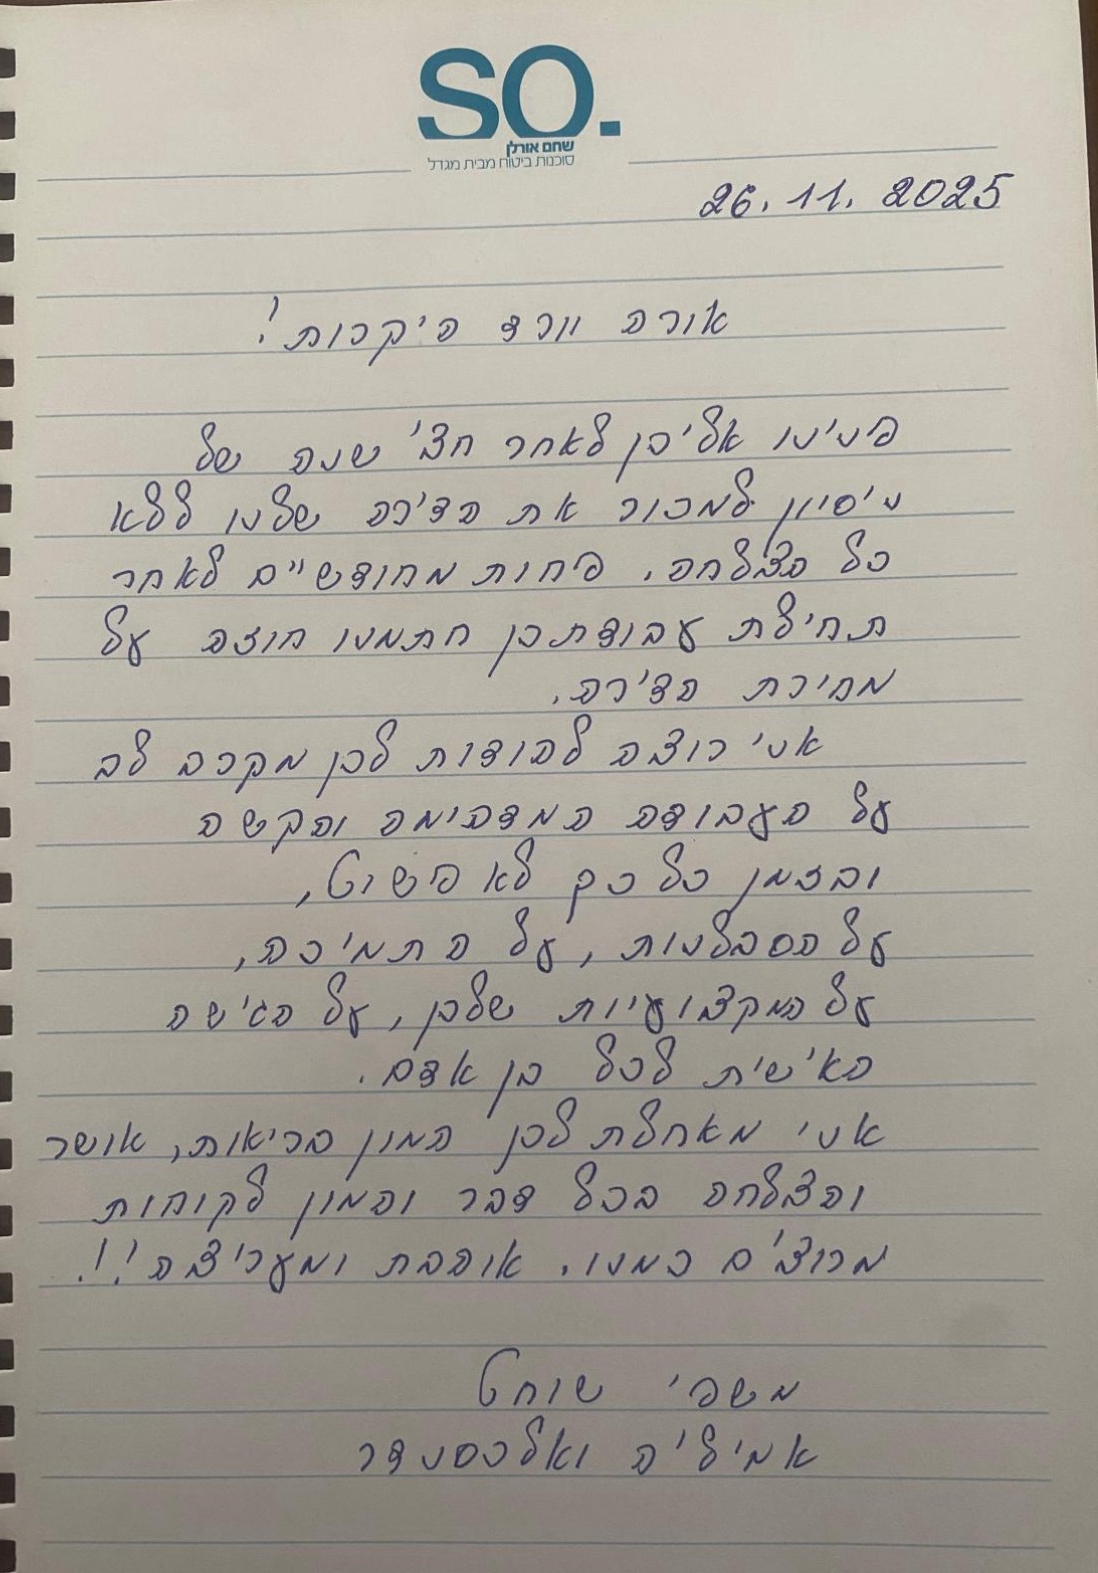 SO.
שחם אורלן
סוכנות ביטוח מבית מגדל
26.11.2025
אורה וורד היקרות!
פנינו אליכן לאחר חצי שנה של
ניסיון למכור את הדירה שלנו ללא
כל הצלחה. פחות מחודשיים לאחר
תחילת עבודתכן חתמנו חוזה על
מכירת הדירה.
אני רוצה להודות לכן מקרב לב
על העבודה המדהימה והקשה
ובזמן כל כך לא פשוט,
על הסבלנות, על התמיכה,
על המקצועיות שלכן, על הגישה
האישית לכל בן אדם.
אני מאחלת לכן המון בריאות, אושר
והצלחה בכל דבר והמון לקוחות
מרוצים כמנו. אוהבת ומעריצה!!
משפ' שוחט
אמיליה ואלכסנדר